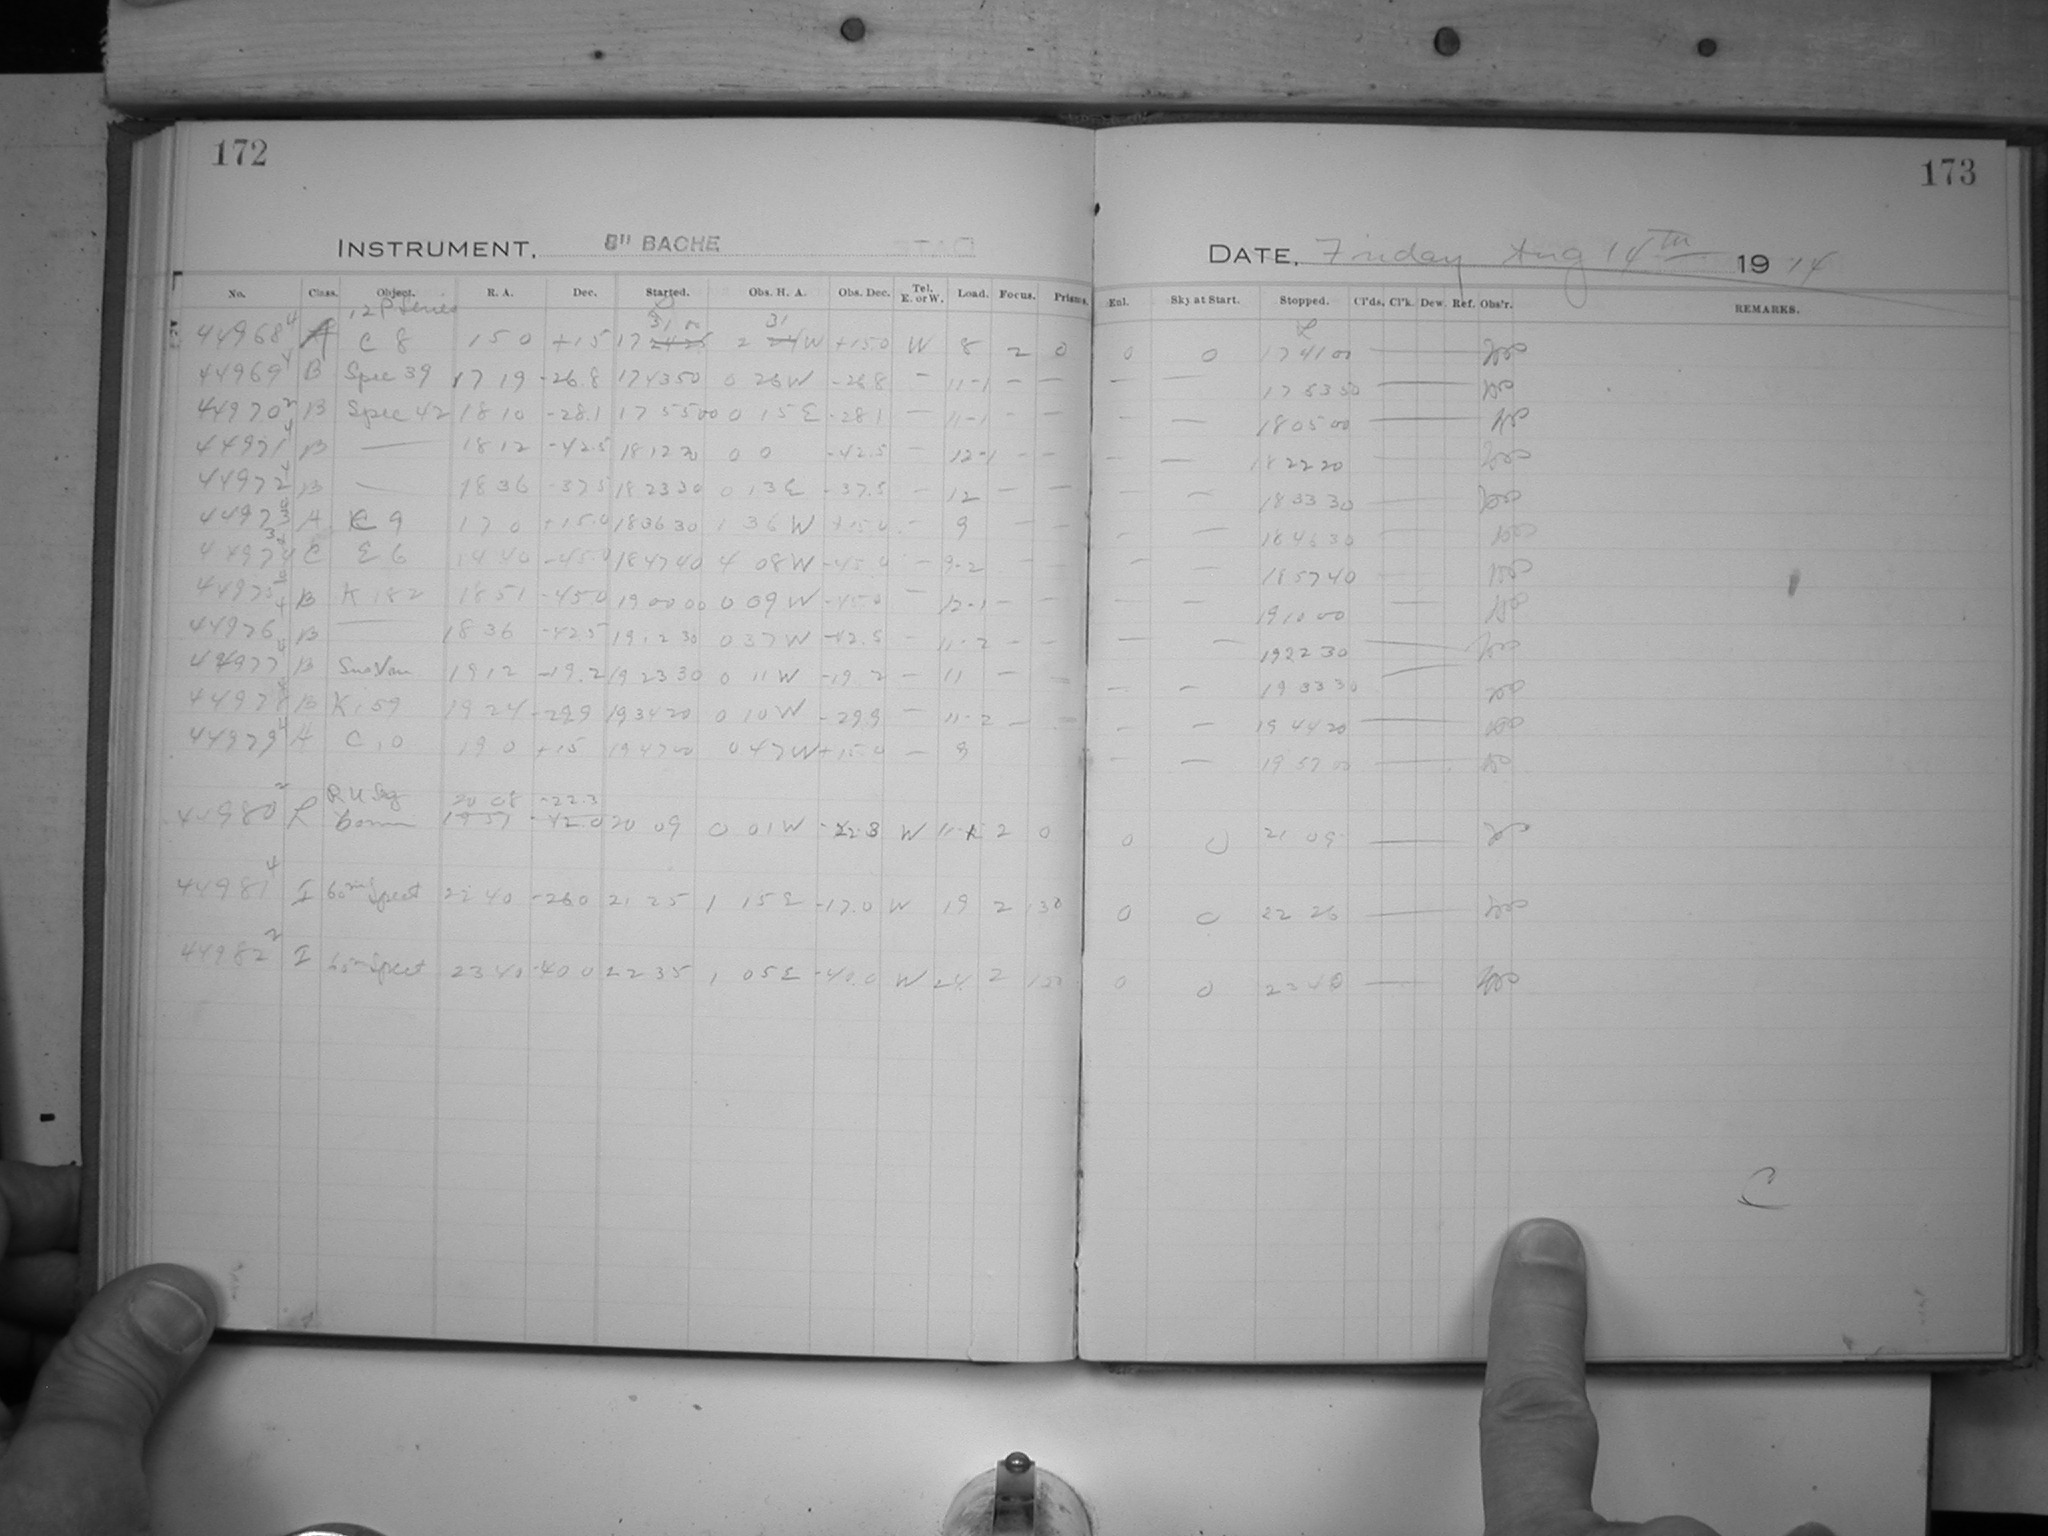 172
173
INSTRUMENT. 8" BACHE
DATE. Friday Aug 14th 1914
No. Class. Object. R. A. Dec. Started. Obs. H. A. Obs. Dec. Tel. E. or W. Load. Focus. Prisms. Enl. Sky at Start. Stopped. Cl'ds. Cl'k. Dew. Ref. Obs'r. REMARKS.
44968 A C 8 15 0 +15 17 31 00 2 31 W +15.0 W 8 2 0 0 0 17 41 00
44969 B Spec 39 17 19 -26.8 17 43 50 0 26 W -26.8 — 11-1 — — — — 17 53 50
44970 B Spec 42 18 10 -28.1 17 55 00 0 15 E -28.1 — 11-1 — — — — 18 05 00
44971 B — 18 12 -42.5 18 12 20 0 0 -42.5 — 12-1 — — — — 18 22 20
44972 B — 18 36 -37.5 18 23 30 0 13 E -37.5 — 12 — — — — 18 33 30
44973 A C 9 17 0 +15.0 18 36 30 1 36 W +15.0 — 9 — — — — 18 46 30
44974 C E 6 14 40 -45.0 18 47 40 4 08 W -45.0 — 9-2 — — — — 18 57 40
44975 B K 182 18 51 -45.0 19 00 00 0 09 W -45.0 — 12-1 — — — — 19 10 00
44976 B — 18 36 -42.5 19 12 30 0 37 W -42.5 — 11-2 — — — — 19 22 30
44977 B 19 12 -19.2 19 23 30 0 11 W -19.2 — 11 — — — — 19 33 30
44978 B K 159 19 24 -29.9 19 34 20 0 10 W -29.9 — 11-2 — — — — 19 44 20
44979 A C 10 19 0 +15 19 47 00 0 47 W +15.0 — 9 — — 19 57 00
44980 R U Sag 20 08 -22.3 20 09 0 01 W W 2 0 0 0 21 09
44981 I 60m Spect 22 40 -26.0 21 25 1 15 E -17.0 W 19 2 130 0 0 22 26
44982 I Spect 23 40 -40.0 22 35 1 05 E -40.0 W 24 2 0 0
C